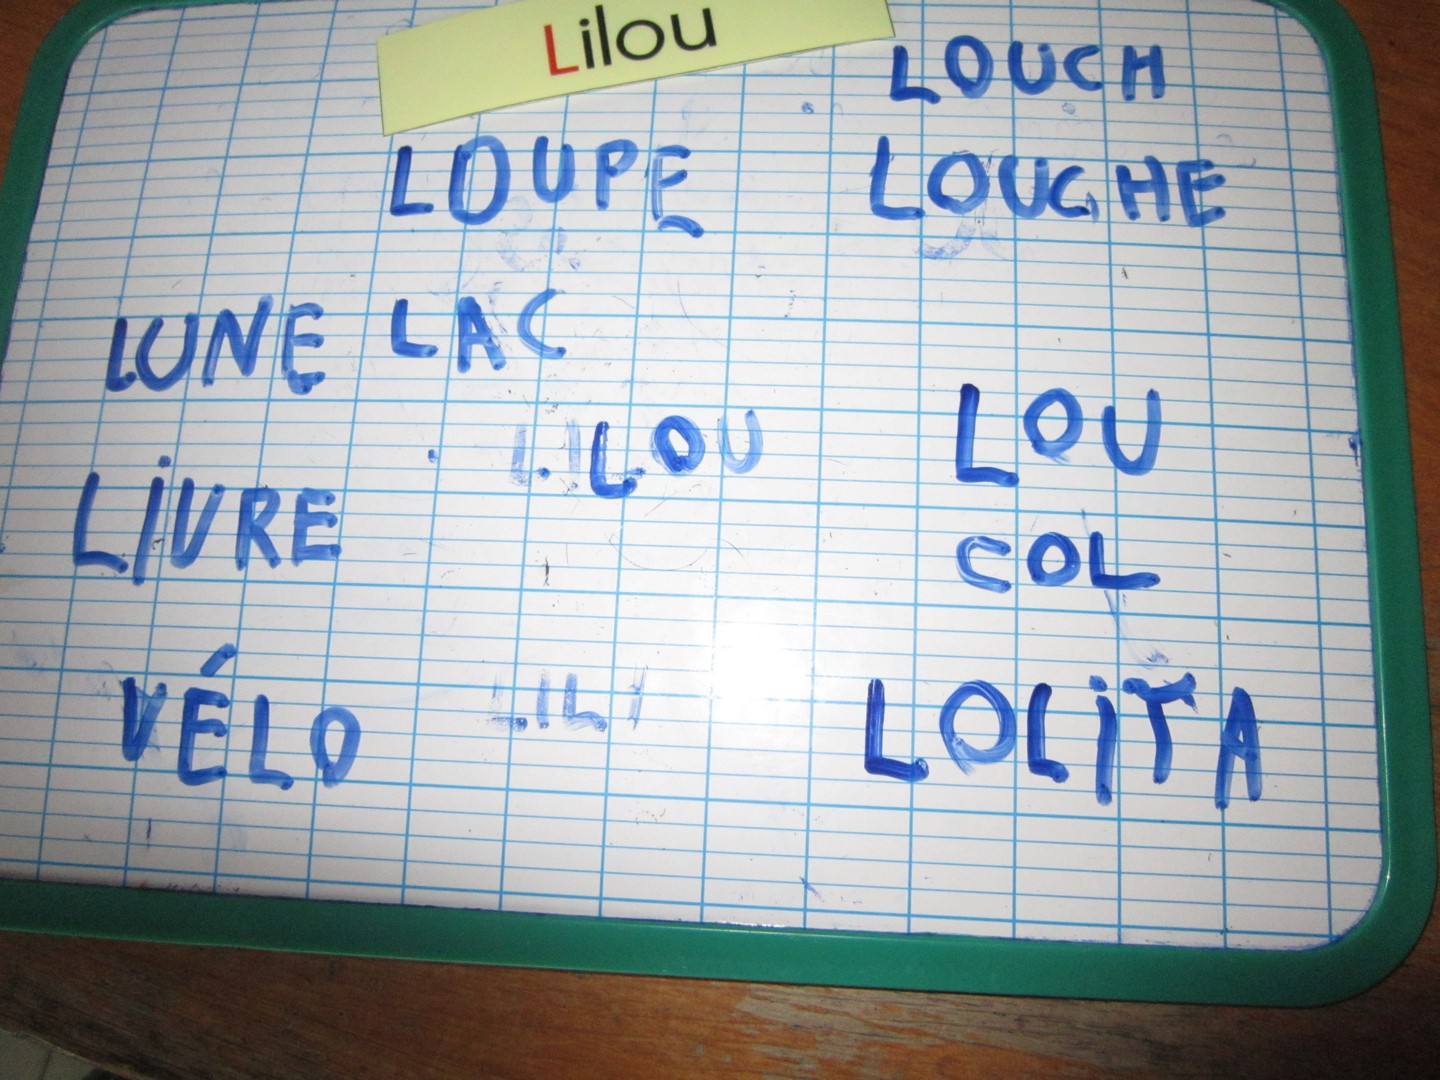 Lilou
LOUCH
LOUPE LOUCHE
LUNE LAC
LILOU LOU
LIVRE COL
VÉLO LILI LOLITA